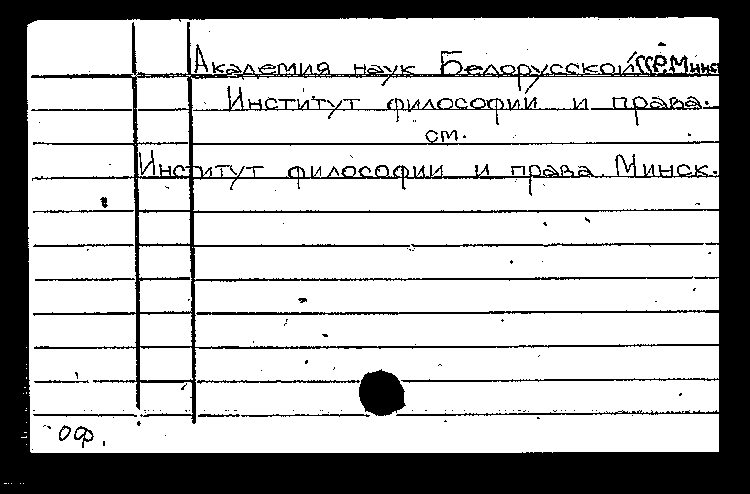 Академия наук Белорусской ССР. Минск
Институт философии и права.
см.
Институт философии и права. Минск.
оф.